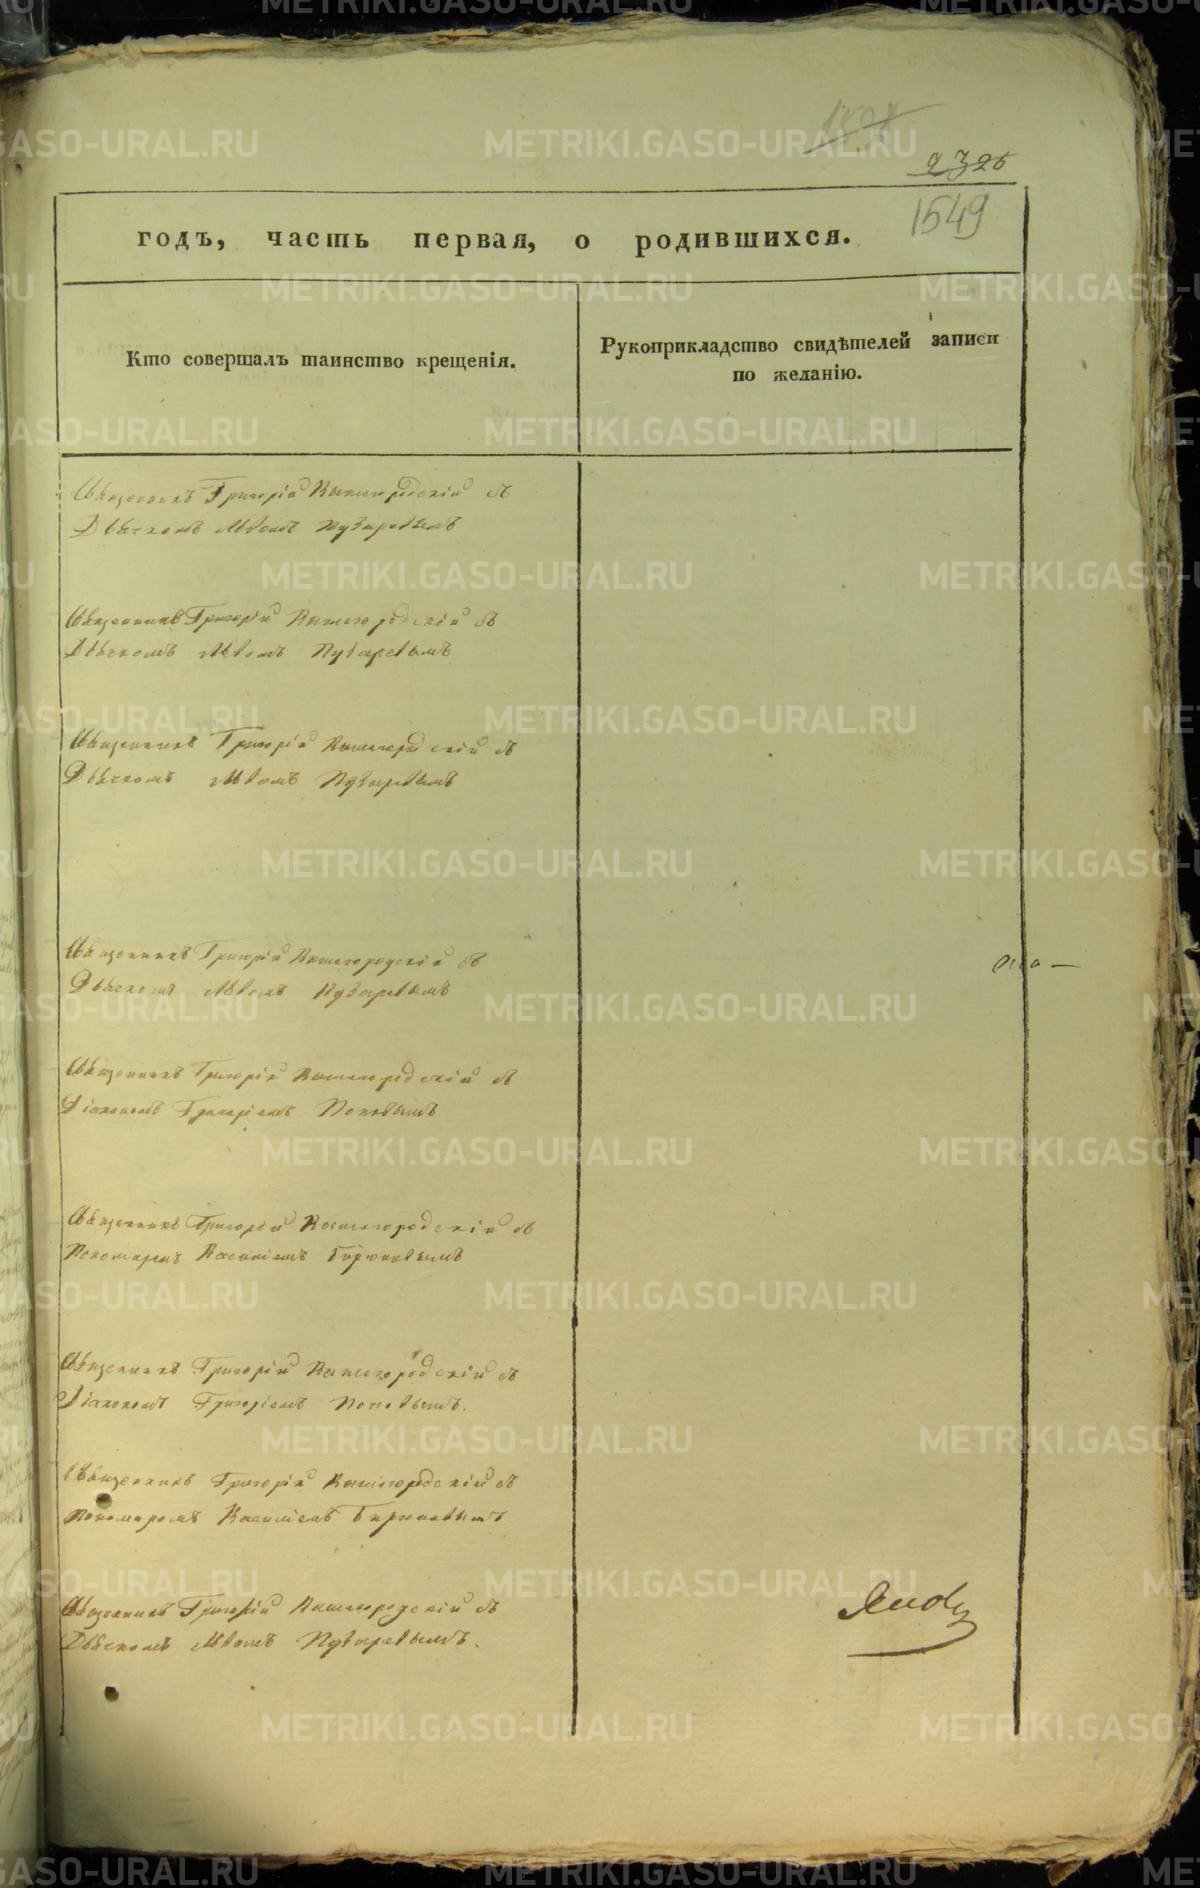 2325
1549
годъ, часть первая, о родившихся.
Кто совершалъ таинство крещенія.
Рукоприкладство свидѣтелей записи
по желанію.
Священникъ Григорій Вышегородскій съ
Дьячкомъ Львомъ Пузыревымъ
Священникъ Григорій Вышегородскій съ
Дьячкомъ Львомъ Пузыревымъ
Священникъ Григорій Вышегородскій съ
Дьячкомъ Львомъ Пузыревымъ
Священникъ Григорій Вышегородскій съ
Дьячкомъ Львомъ Пузыревымъ
Священникъ Григорій Вышегородскій съ
Діакономъ Григоріемъ Поповымъ
Священникъ Григорій Вышегородскій съ
Пономаремъ Василіемъ Бирюковымъ
Священникъ Григорій Вышегородскій съ
Діакономъ Григоріемъ Поповымъ.
Священникъ Григорій Вышегородскій съ
Пономаремъ Василіемъ Бирюковымъ
Священникъ Григорій Вышегородскій съ
Дьячкомъ Львомъ Пузыревымъ.
METRIKI.GASO-URAL.RU